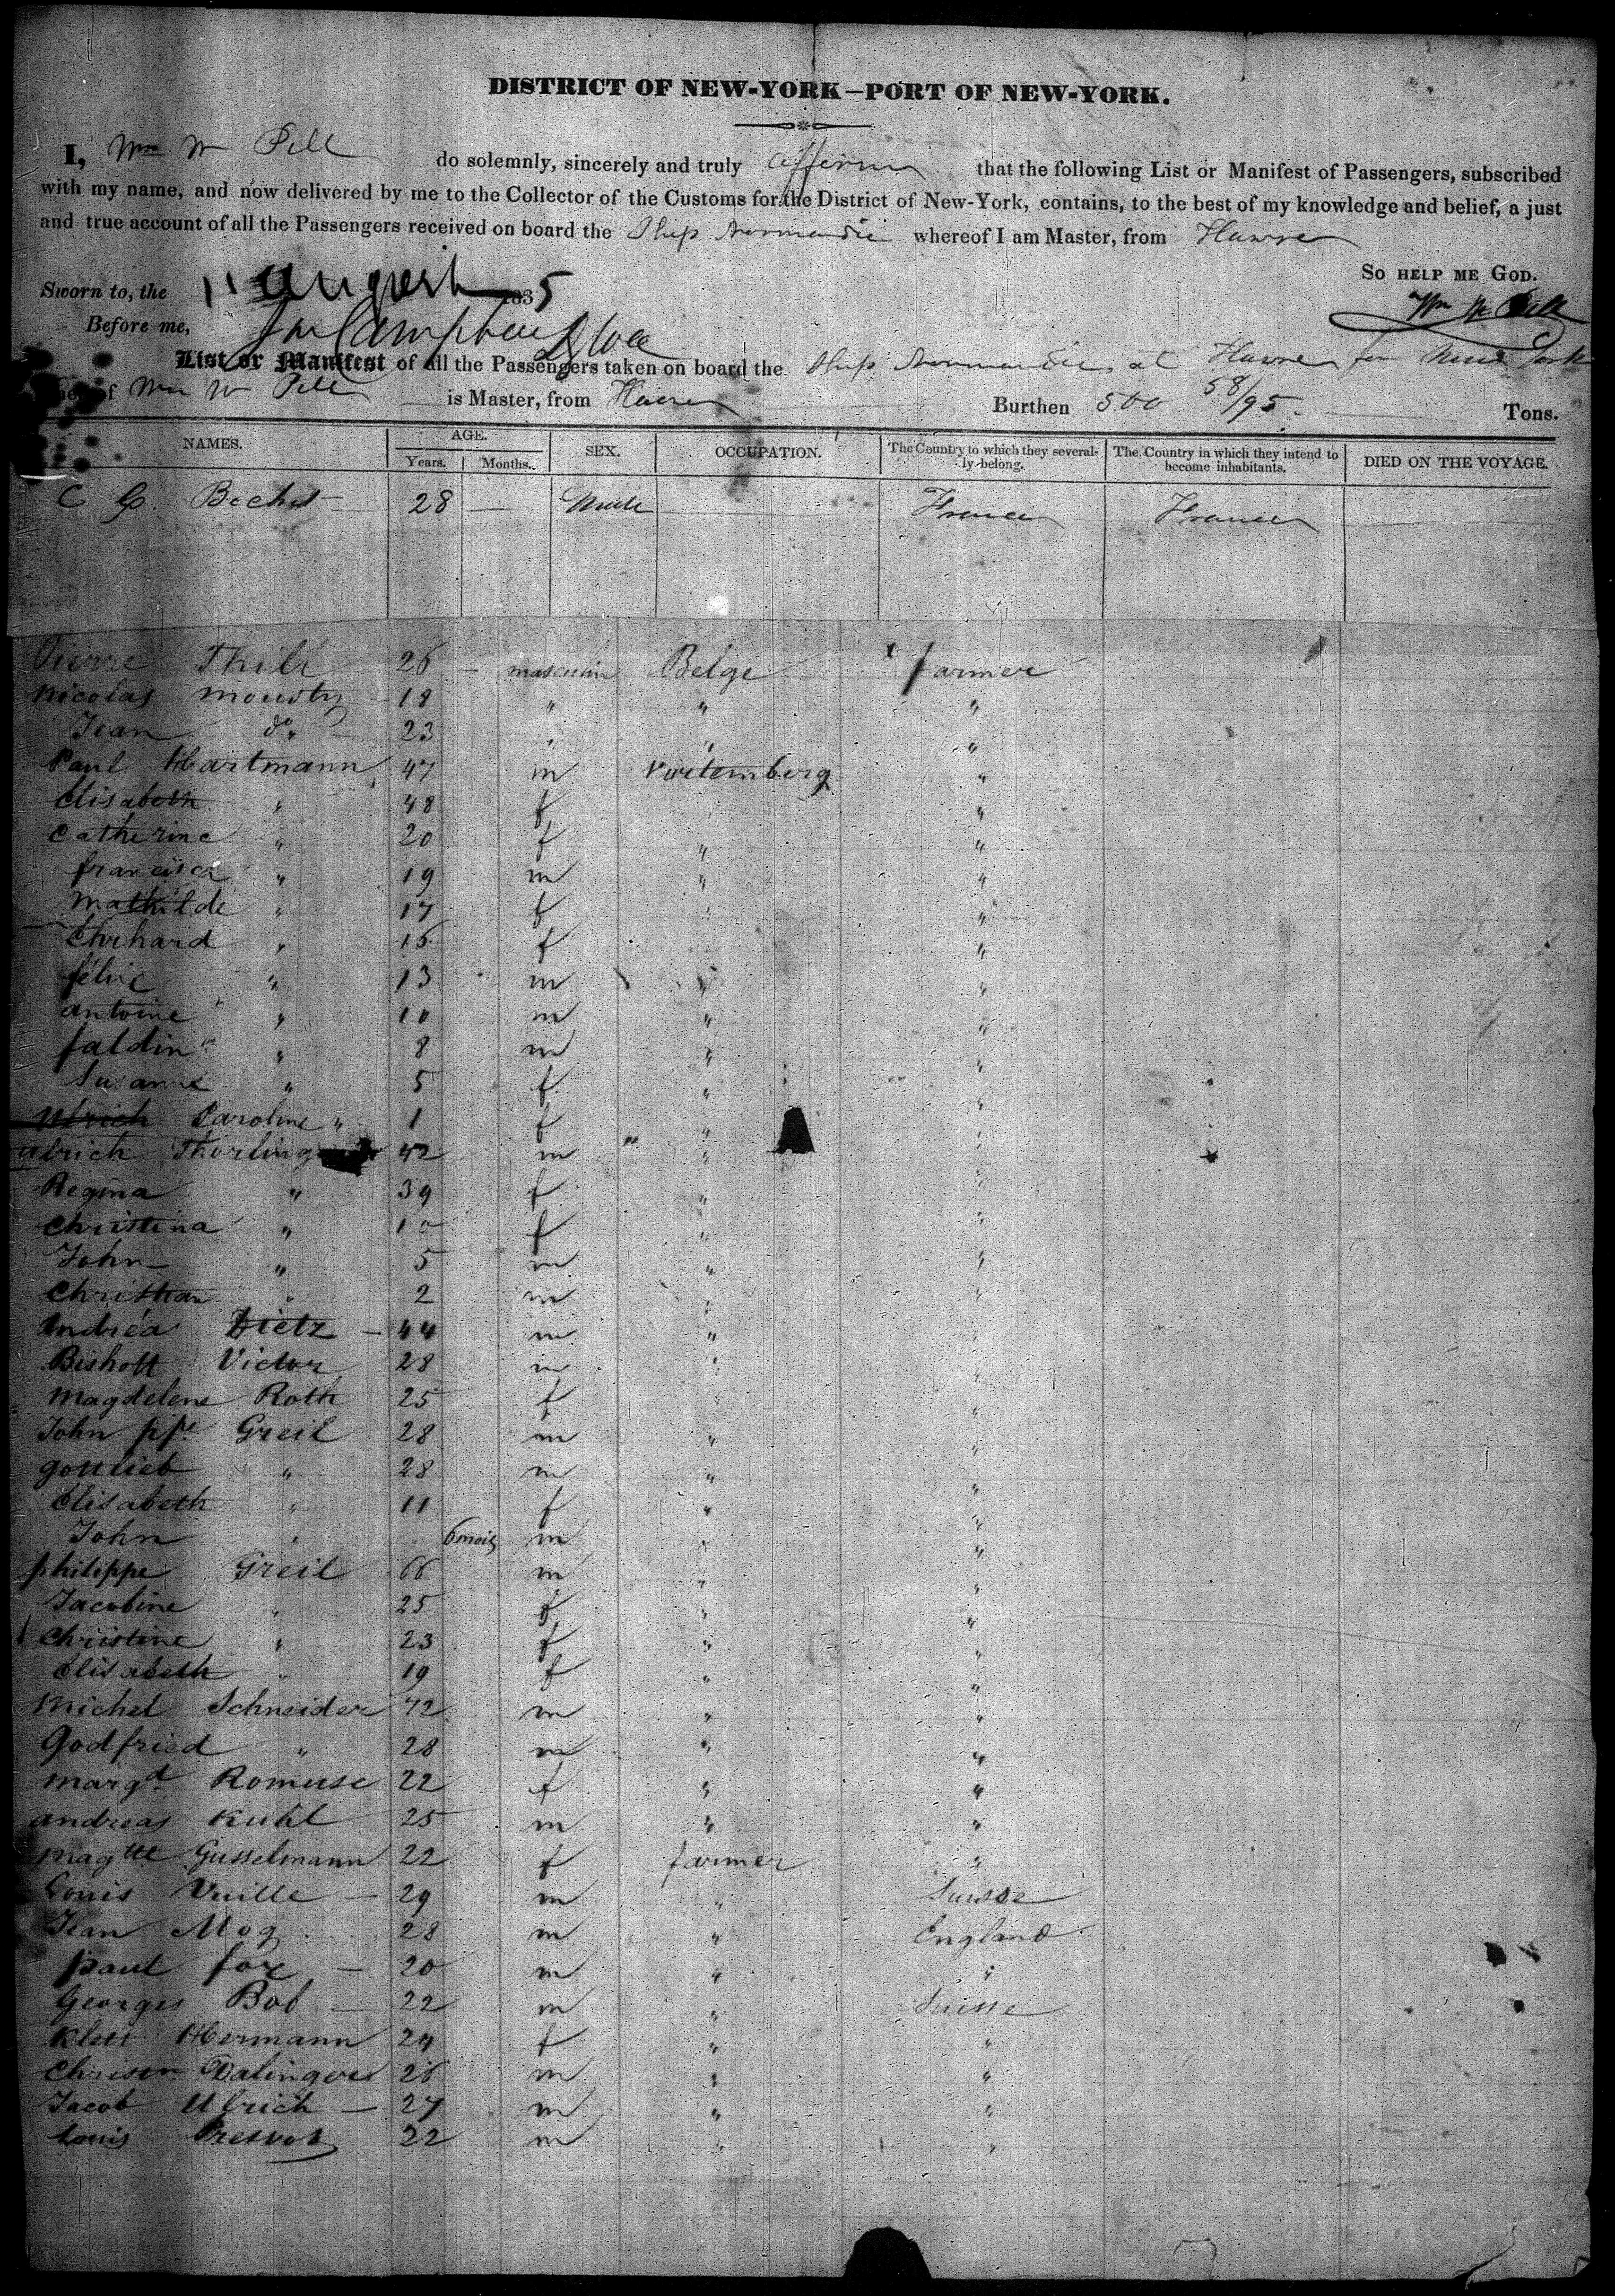 DISTRICT OF NEW-YORK—PORT OF NEW-YORK.
I, Wm W Pell do solemnly, sincerely and truly affirm that the following List or Manifest of Passengers, subscribed
with my name, and now delivered by me to the Collector of the Customs for the District of New-York, contains, to the best of my knowledge and belief, a just
and true account of all the Passengers received on board the Ship Normandie whereof I am Master, from Havre
So HELP ME GOD.
Sworn to, the 11 August 1835
Wm W Pell
Before me,
List or Manifest of all the Passengers taken on board the Ship Normandie at Havre for New York
whereof Wm W Pell is Master, from Havre Burthen 500 58/95 Tons.
NAMES. AGE. Years. Months. SEX. OCCUPATION. The Country to which they severally belong. The Country in which they intend to become inhabitants. DIED ON THE VOYAGE.
C G. Bechet — 28 — Male France France
Pierre Thill 26 — masculin Belge farmer
Nicolas Mousty 18 " " "
Jean do 23 " " "
Paul Hartmann 47 m Vurtemberg "
Elisabeth " 48 f "
Catherine " 20 f " "
francisca " 19 m " "
Mathilde " 17 f " "
Ehrhard " 15 f "
félix " 13 m " "
antoine " 10 m " "
faldin " 8 m " "
Susanne " 5 f " "
Ulrich Caroline " 1 f " "
Ulrich Thurling 42 m " "
Regina " 39 f " "
Christina " 10 f " "
John " 5 m " "
Christian " 2 m " "
Andréa Dietz — 44 m "
Bishoff Victor 28 m " "
Magdelene Roth 25 f "
John Greil 28 m " "
gottlieb " 28 m " "
Elisabeth " 11 f " "
John " 6 mois m " "
philippe Greil 66 m " "
Jacobine " 25 f " "
Christine " 23 f " "
Elisabeth " 19 f " "
Michel Schneider 72 m " "
Godfried " 28 m " "
Margd Romuse 22 f " "
andreas Kuhl 25 m " "
Magtte Gusselmann 22 f farmer "
Louis Vuille — 29 m " Suisse
Jean Mog 28 m " England
paul fox — 20 m " "
Georges Bob — 22 m " Suisse
Klett Hermann 24 f " "
Dalinger 26 m " "
Jacob Ulrich — 27 m " "
Louis Prevot 22 m " "